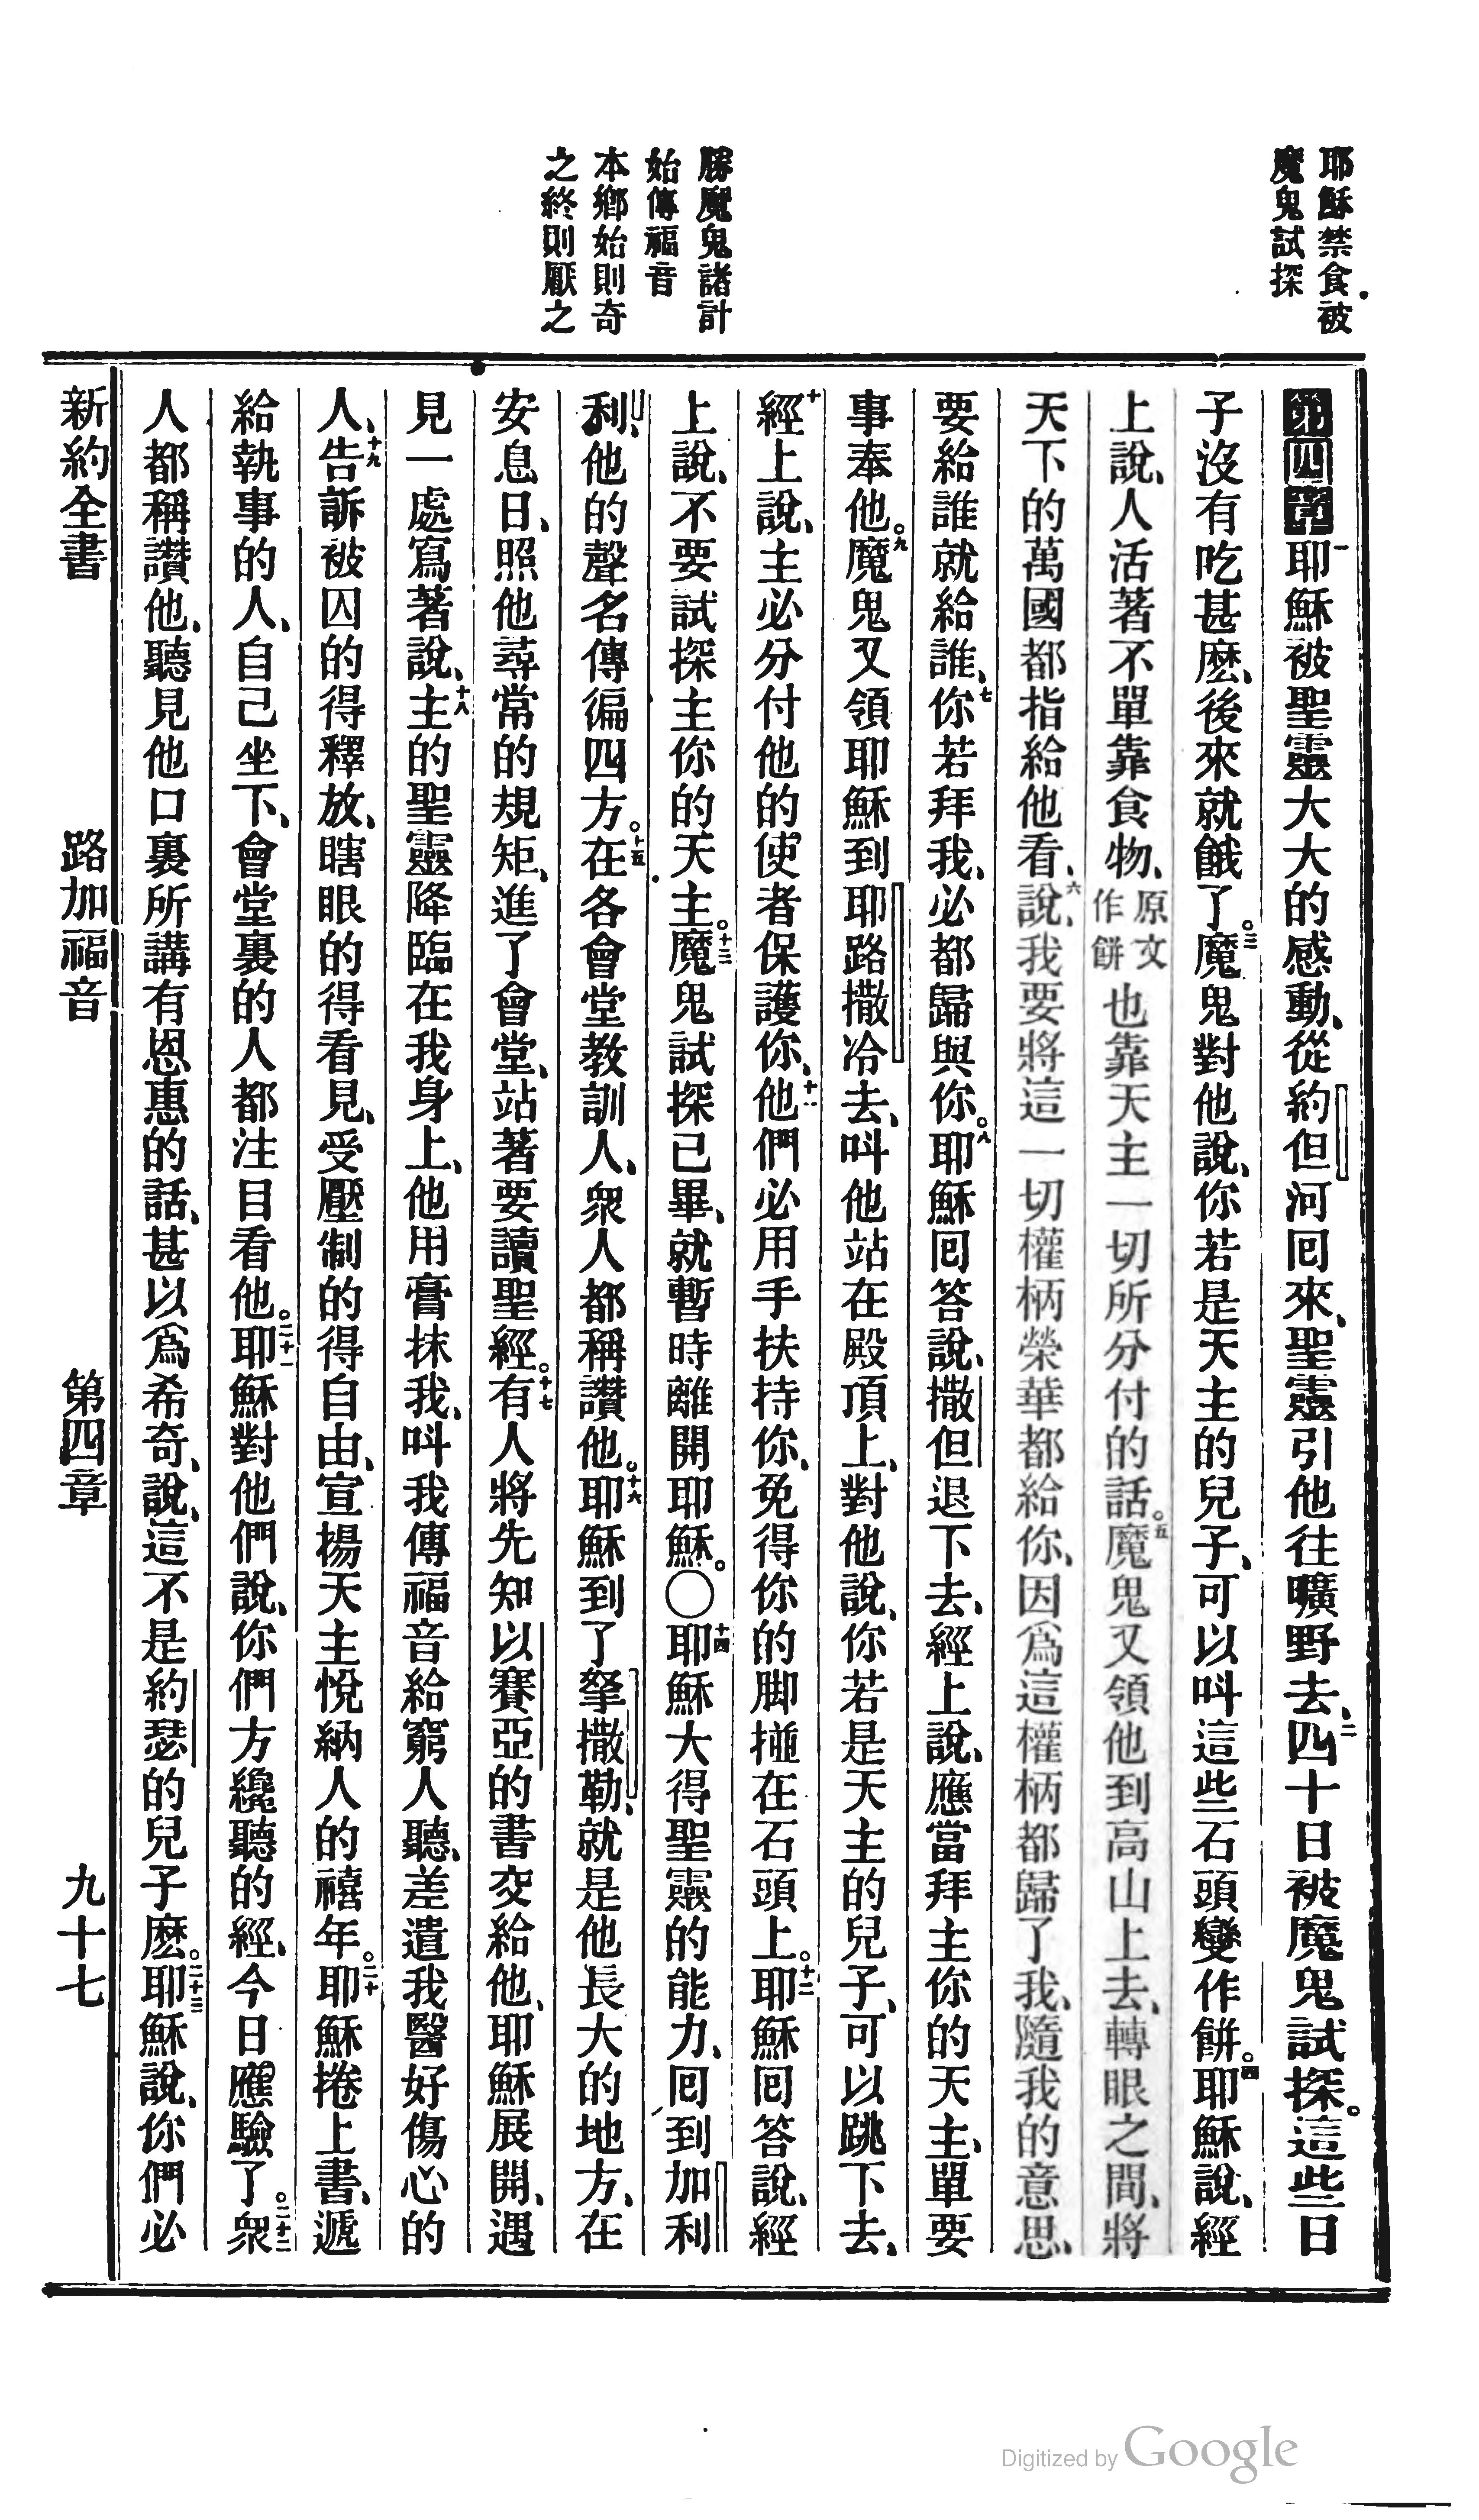 耶穌禁食被
魔鬼試探
勝魔鬼諸計
始傳福音
本鄉始則奇
之終則厭之
第四章一耶穌被聖靈大大的感動、從約但河囘來、聖靈引他往曠野去、二四十日被魔鬼試探。這些日
子沒有吃甚麽、後來就餓了。三魔鬼對他說、你若是天主的兒子、可以呌這些石頭變作餅。四耶穌說、經
上說、人活著不單靠食物、原文作餅也靠天主一切所分付的話。五魔鬼又領他到高山上去、轉眼之間、將
天下的萬國都指給他看、六說、我要將這一切權柄榮華都給你、因爲這權柄都歸了我、隨我的意思、
要給誰就給誰、七你若拜我、必都歸與你。八耶穌囘答說、撒但退下去、經上說、應當拜主你的天主、單要
事奉他。九魔鬼又領耶穌到耶路撒冷去、呌他站在殿頂上、對他說、你若是天主的兒子、可以跳下去、
十經上說、主必分付他的使者保護你、十一他們必用手扶持你、免得你的脚撞在石頭上。十二耶穌囘答說、經
上說、不要試探主你的天主。十三魔鬼試探已畢、就暫時離開耶穌。〇十四耶穌大得聖靈的能力、囘到加利
利、他的聲名傳徧四方。十五在各會堂教訓人、衆人都稱讚他。十六耶穌到了拏撒勒、就是他長大的地方、在
安息日、照他尋常的規矩、進了會堂、站著要讀聖經。十七有人將先知以賽亞的書交給他、耶穌展開、遇
見一處寫著說、十八主的聖靈降臨在我身上、他用膏抹我、呌我傳福音給窮人聽、差遣我醫好傷心的
人、十九告訴被囚的得釋放、瞎眼的得看見、受壓制的得自由、宣揚天主悅納人的禧年。二十耶穌捲上書、遞
給執事的人、自己坐下、會堂裏的人都注目看他。二十一耶穌對他們說、你們方纔聽的經、今日應驗了。二十二衆
人都稱讚他、聽見他口裏所講有恩惠的話、甚以爲希奇、說、這不是約瑟的兒子麽。二十三耶穌說、你們必
新約全書 路加福音 第四章 九十七
Digitized by Google